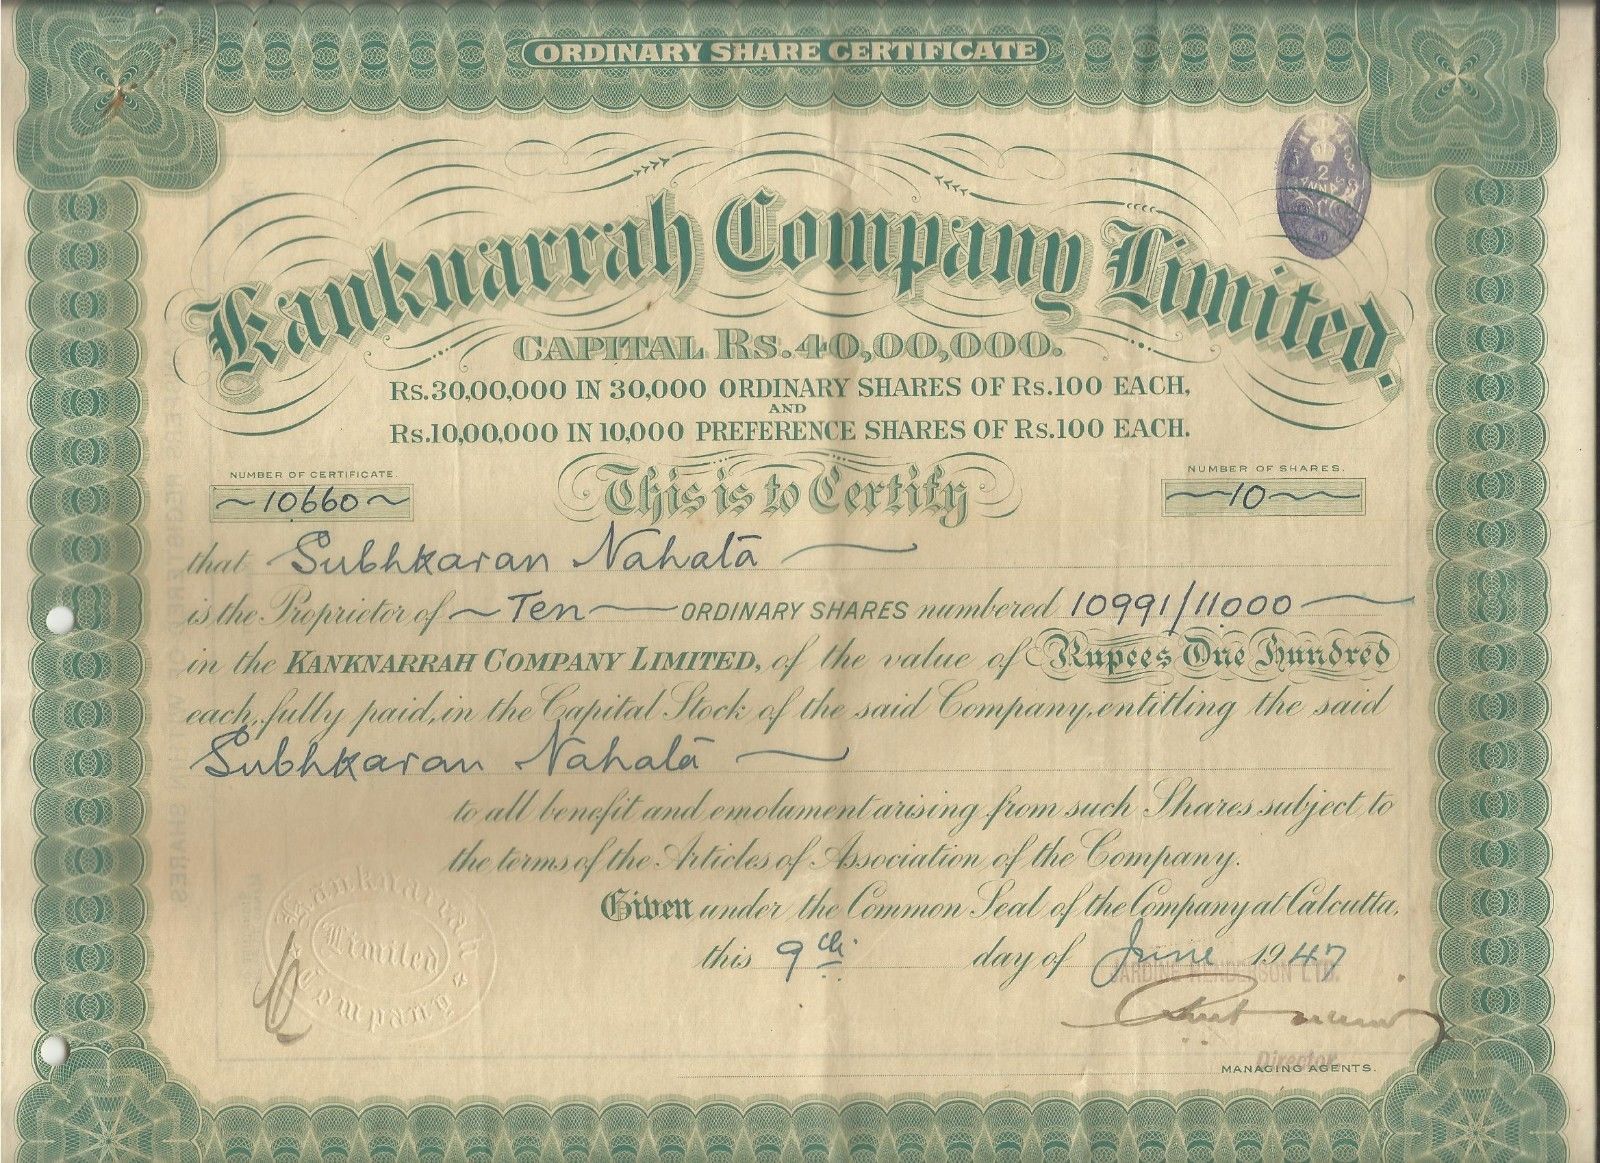 ORDINARY SHARE CERTIFICATE
2
ANNAS
Kanknarrah Company Limited.
CAPITAL Rs.40,00,000.
Rs.30,00,000 IN 30,000 ORDINARY SHARES OF Rs.100 EACH,
AND
Rs.10,00,000 IN 10,000 PREFERENCE SHARES OF Rs.100 EACH.
NUMBER OF CERTIFICATE.
10660
This is to Certify
NUMBER OF SHARES.
10
that Subhkaran Nahata
is the Proprietor of Ten ORDINARY SHARES numbered 10991/11000
in the KANKNARRAH COMPANY LIMITED, of the value of Rupees One Hundred
each, fully paid, in the Capital Stock of the said Company, entitling the said
Subhkaran Nahata
to all benefit and emolument arising from such Shares subject to
the terms of the Articles of Association of the Company.
Given under the Common Seal of the Company at Calcutta,
this 9th day of June 1947
JARDINE HENDERSON LTD.
Kanknarrah
Limited
Company
Director
MANAGING AGENTS.